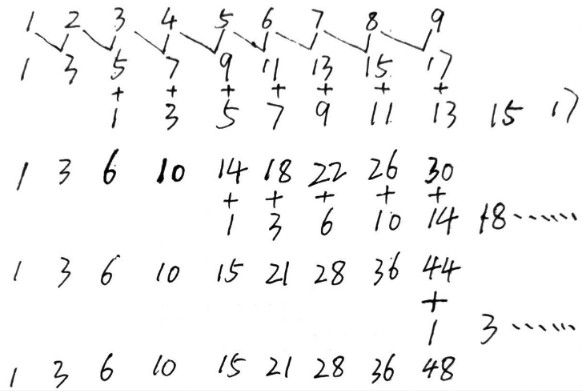 1 2 3 4 5 6 7 8 9
1 3 5 7 9 11 13 15 17
+ + + + + + +
1 3 5 7 9 11 13 15 17
1 3 6 10 14 18 22 26 30
+ + + + +
1 3 6 10 14 18 ......
1 3 6 10 15 21 28 36 44
+
1 3 ......
1 3 6 10 15 21 28 36 48